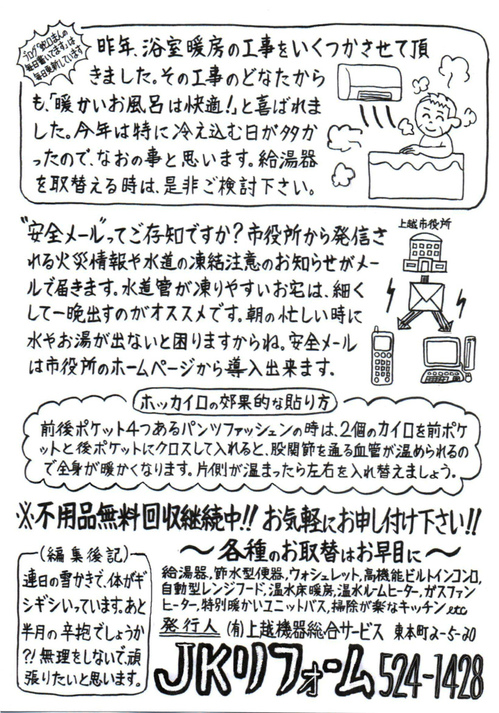 ブログ"蛇口まんの
毎日書いてます"は
毎日更新しています
昨年、浴室暖房の工事をいくつかさせて頂
きました。その工事のどなたから
も、「暖かいお風呂は快適!」と喜ばれま
した。今年は特に冷え込む日が多か
ったので、なおの事と思います。給湯器
を取替える時は、是非ご検討下さい。
"安全メール"ってご存知ですか?市役所から発信さ
れる火災情報や水道の凍結注意のお知らせがメー
ルで届きます。水道管が凍りやすいお宅は、細く
して一晩出すのがオススメです。朝の忙しい時に
水やお湯が出ないと困りますからね。安全メール
は市役所のホームページから導入出来ます。
上越市役所
ホッカイロの効果的な貼り方
前後ポケット4つあるパンツファッションの時は、2個のカイロを前ポケ
ットと後ポケットにクロスして入れると、股関節を通る血管が温められるの
で全身が暖かくなります。片側が温まったら左右を入れ替えましょう。
※不用品無料回収継続中!! お気軽にお申し付け下さい!!
～各種のお取替はお早目に～
給湯器,節水型便器,ウォシュレット,高機能ビルトインコンロ,
自動型レンジフード,温水床暖房,温水ルームヒーター,ガスファン
ヒーター,特別暖かいユニットバス,掃除が楽なキッチン etc
(編集後記)
連日の雪かきで、体がギ
シギシいっています。あと
半月の辛抱でしょうか
?!無理をしないで、頑
張りたいと思います。
発行人 (有)上越機器総合サービス 東本町2-5-20
JKリフォーム 524-1428